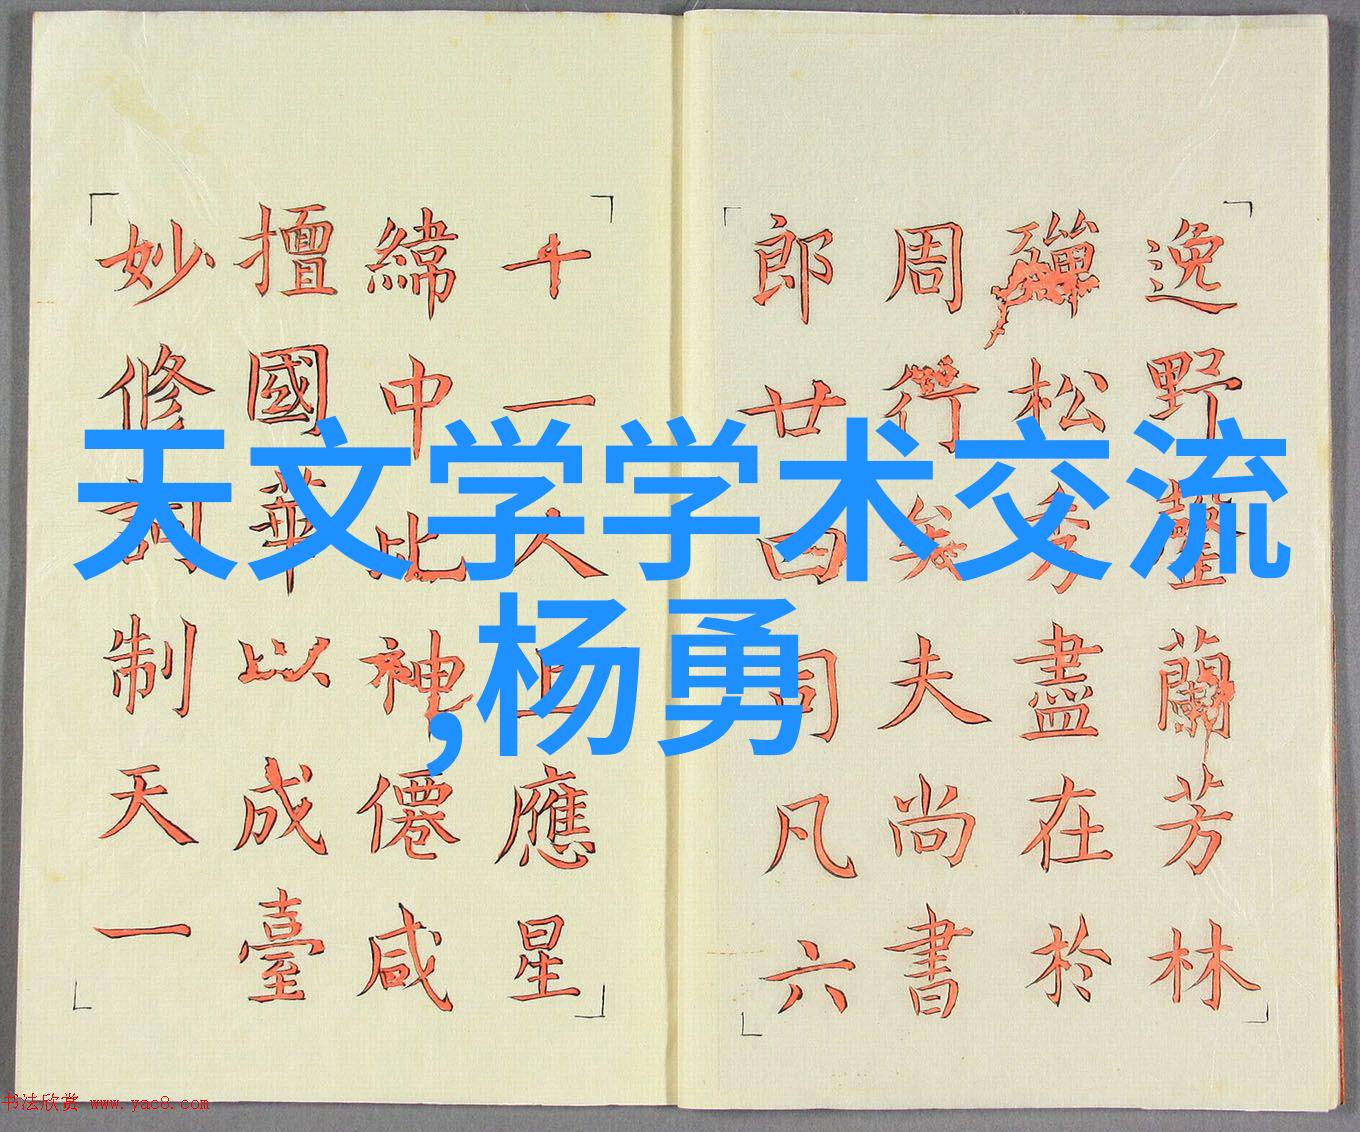 天文学学术交流
,杨勇
逸野罄蘭芳林
殫松秀盡在於
周行矣夫尚書
郎廿四司凡六
十一人上應星
緯中比神僊咸
擅國華以成臺
妙修詞制天一
书法欣赏 www.yac8.com